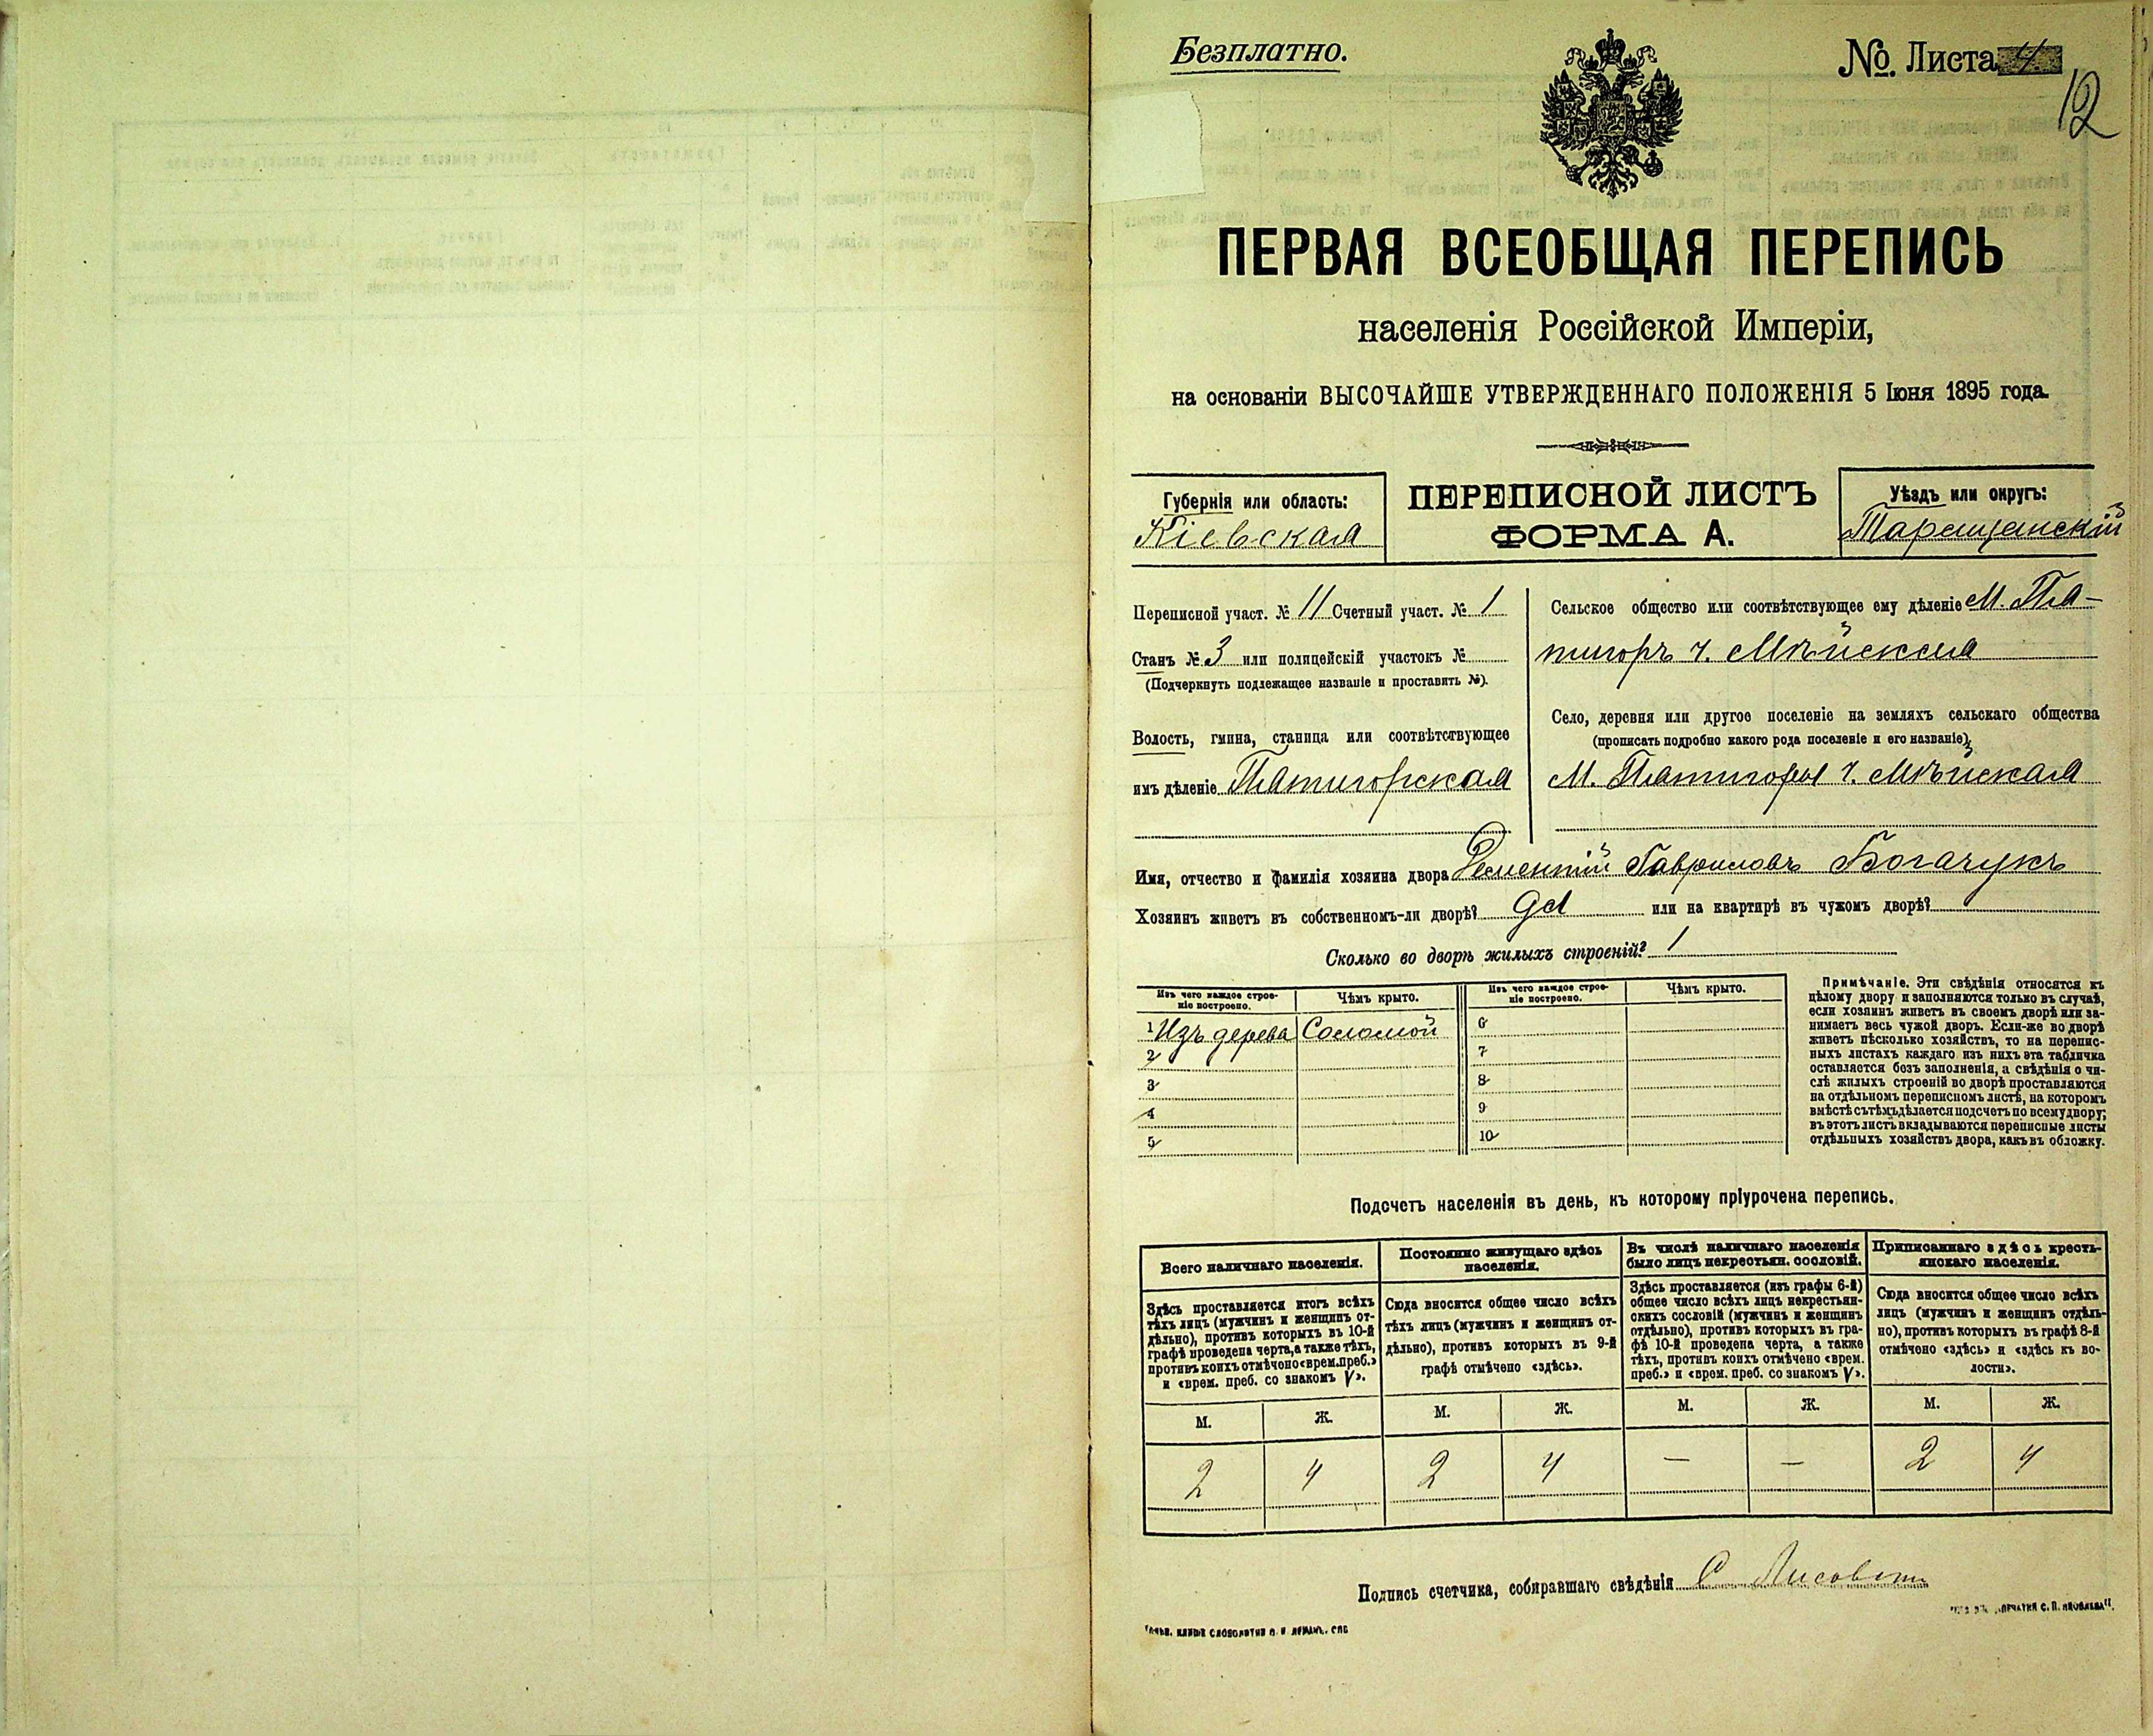 Безплатно.
№ Листа 4.
12
ПЕРВАЯ ВСЕОБЩАЯ ПЕРЕПИСЬ
населенія Россійской Имперіи,
на основаніи ВЫСОЧАЙШЕ УТВЕРЖДЕННАГО ПОЛОЖЕНІЯ 5 Іюня 1895 года.
Губернія или область:
Кіевская
ПЕРЕПИСНОЙ ЛИСТЪ
ФОРМА А.
Уѣздъ или округъ:
Таращанскій
Переписной участ. № 11 Счетный участ. № 1
Станъ № 3 или полицейскій участокъ №
(Подчеркнуть подлежащее названіе и проставить №).
Волость, гмина, станица или соотвѣтствующее
имъ дѣленіе Пятигорская
Сельское общество или соотвѣтствующее ему дѣленіе М. Пя-
тигоръ ч.
Село, деревня или другое поселеніе на земляхъ сельскаго общества
(прописать подробно какого рода поселеніе и его названіе)
М. Пятигоры ч.
Имя, отчество и фамилія хозяина двора Гавриловъ Богачукъ
Хозяинъ живетъ въ собственномъ-ли дворѣ? Да или на квартирѣ въ чужомъ дворѣ?
Сколько во дворѣ жилыхъ строеній? 1
Изъ чего каждое строе-
ніе построено.
Чѣмъ крыто.
Изъ чего каждое строе-
ніе построено.
Чѣмъ крыто.
1 Изъ дерева Соломой
2
3
4
5
6
7
8
9
10
Примѣчаніе. Эти свѣдѣнія относятся къ
цѣлому двору и заполняются только въ случаѣ,
если хозяинъ живетъ въ своемъ дворѣ или за-
нимаетъ весь чужой дворъ. Если-же во дворѣ
живетъ нѣсколько хозяйствъ, то на перепис-
ныхъ листахъ каждаго изъ нихъ эта табличка
оставляется безъ заполненія, а свѣдѣнія о чи-
слѣ жилыхъ строеній во дворѣ проставляются
на отдѣльномъ переписномъ листѣ, на которомъ
вмѣстѣ съ тѣмъ дѣлается подсчетъ по всему двору;
въ этотъ листъ вкладываются переписные листы
отдѣльныхъ хозяйствъ двора, какъ въ обложку.
Подсчетъ населенія въ день, къ которому пріурочена перепись.
Всего наличнаго населенія.
Здѣсь проставляется итогъ всѣхъ
тѣхъ лицъ (мужчинъ и женщинъ от-
дѣльно), противъ которыхъ въ 10-й
графѣ проведена черта, а также тѣхъ,
противъ коихъ отмѣчено «врем. преб.»
и «врем. преб. со знакомъ V».
Постоянно живущаго здѣсь
населенія.
Сюда вносится общее число всѣхъ
тѣхъ лицъ (мужчинъ и женщинъ от-
дѣльно), противъ которыхъ въ 9-й
графѣ отмѣчено «здѣсь».
Въ числѣ наличнаго населенія
было лицъ некрестьян. сословій.
Здѣсь проставляется (изъ графы 6-й)
общее число всѣхъ лицъ некрестьян-
скихъ сословій (мужчинъ и женщинъ
отдѣльно), противъ которыхъ въ гра-
фѣ 10-й проведена черта, а также
тѣхъ, противъ коихъ отмѣчено «врем.
преб.» и «врем. преб. со знакомъ V».
Приписаннаго здѣсь кресть-
янскаго населенія.
Сюда вносится общее число всѣхъ
лицъ (мужчинъ и женщинъ отдѣль-
но), противъ которыхъ въ графѣ 8-й
отмѣчено «здѣсь» и «здѣсь къ во-
лости».
М. Ж. М. Ж. М. Ж. М. Ж.
2 4 2 4 — — 2 4
Подпись счетчика, собиравшаго свѣдѣнія